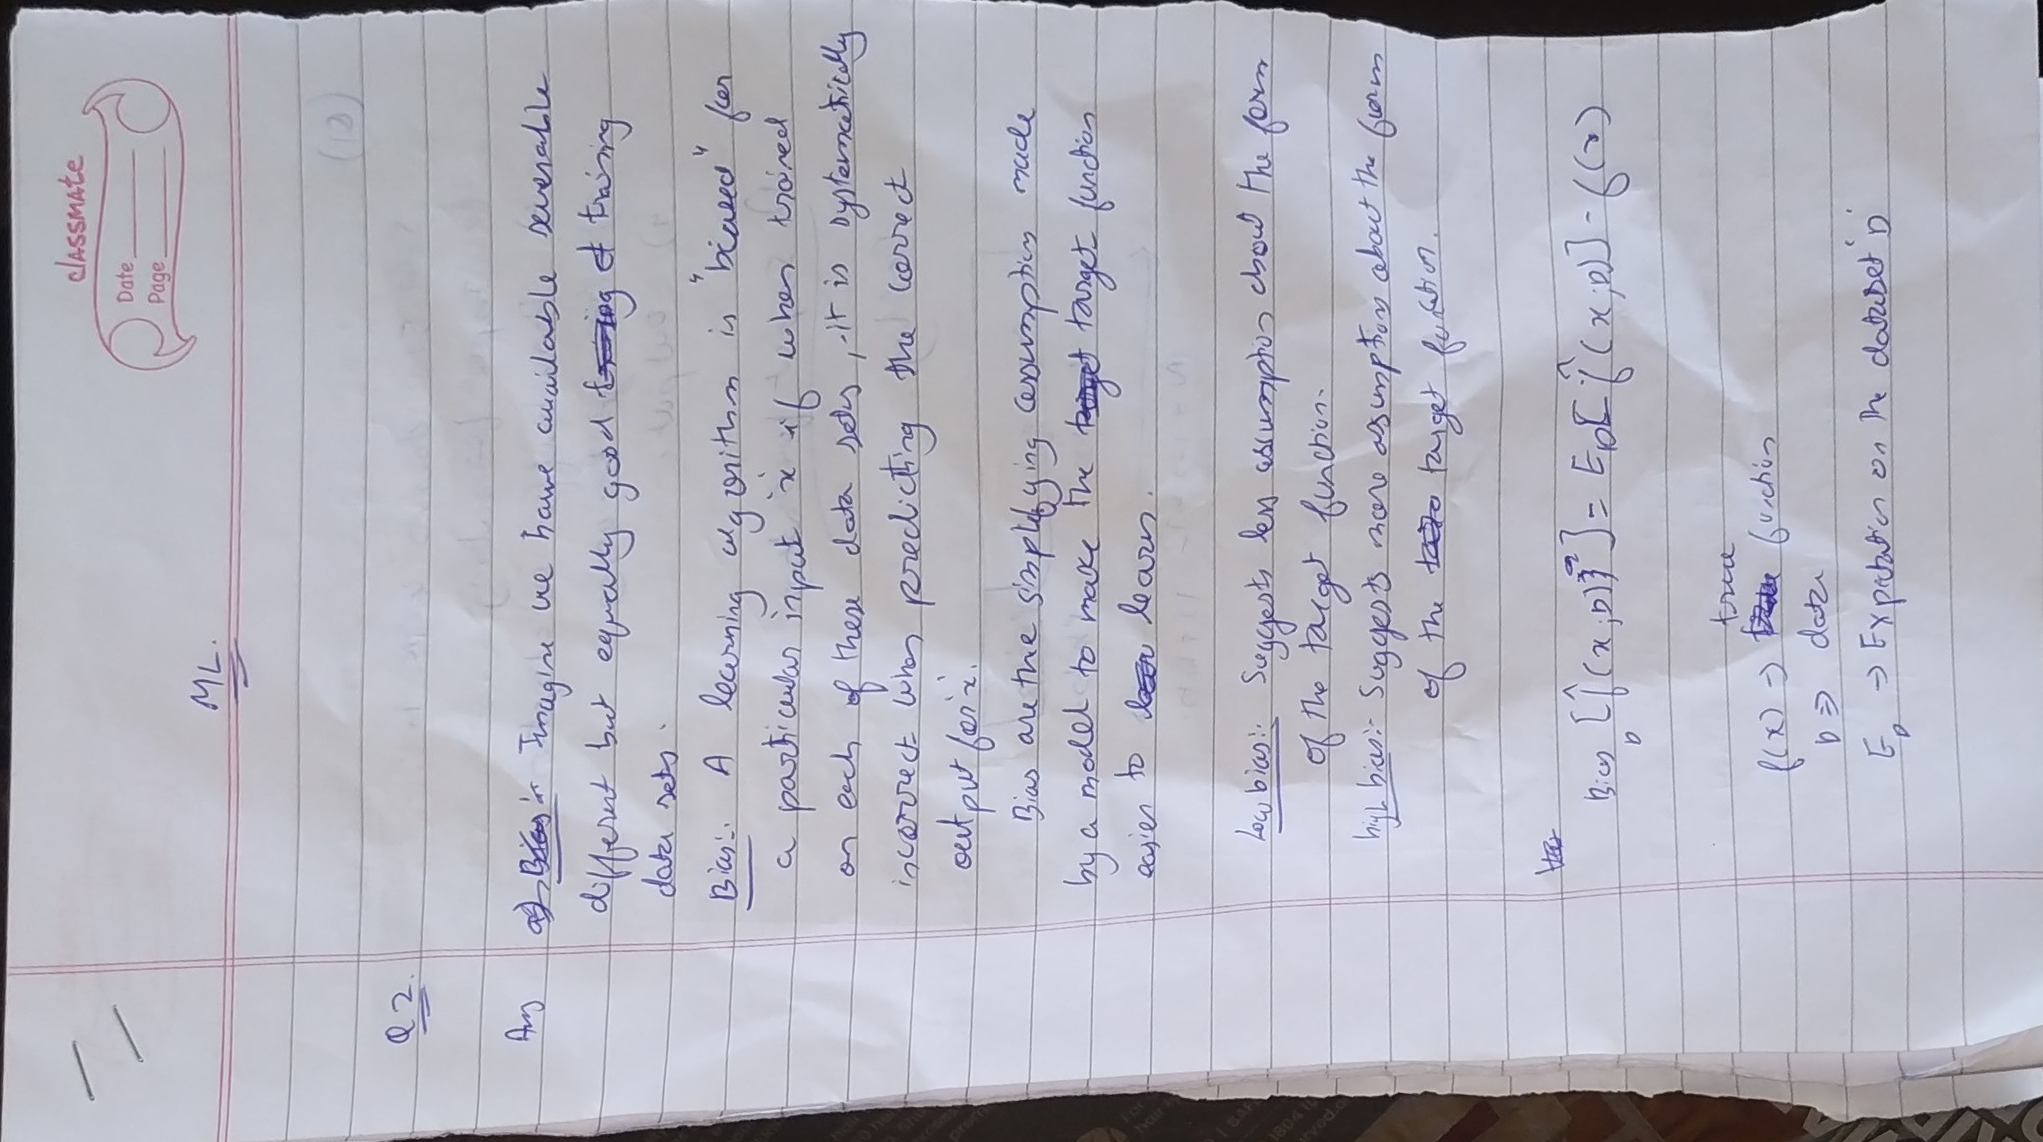 classmate
Date
Page
ML.
Q 2.
Ans Imagine we have available severable
different but equally good training
data sets.
Bias:- A learning algorithm is "biased" for
a particular input 'x' if when trained
on each of these data sets, it is systematically
incorrect when predicting the correct
output for 'x'.
Bias are the simplifying assumption made
by a model to make the target function
easier to learn.
Low bias:- Suggests less assumption about the form
of the target function.
high bias:- Suggests more assumptions about the form
of the target function.
Bias_D [f̂(x;D)] = E_D[f̂(x;D)] - f(x)
f(x) → true function
D → data
E_D → Expectation on the dataset 'D'